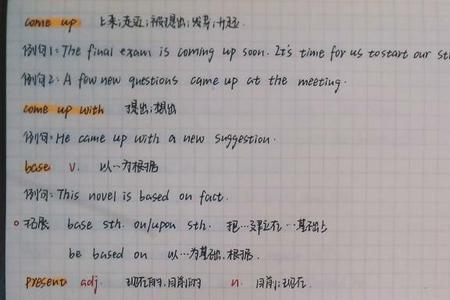 come up 上来;走近;被提出;发芽;升起
例句1: The final exam is coming up soon. It's time for us to start our
例句2: A few new questions came up at the meeting.
come up with 提出;想出
例句: He came up with a new suggestion.
base v. 以…为根据
例句: This novel is based on fact.
拓展 base sth. on/upon sth. 把…建立在…基础上
be based on 以…为基础,根据.
present adj. 现在的,目前的 n. 目前;现在.